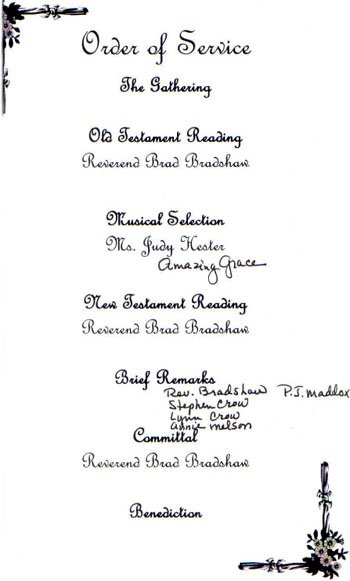 Order of Service
The Gathering
Old Testament Reading
Reverend Brad Bradshaw
Musical Selection
Ms. Judy Hester
Amazing Grace
New Testament Reading
Reverend Brad Bradshaw
Brief Remarks
Rev. Bradshaw P.J. Maddox
Stephen Crow
Lynn Crow
Annie Melson
Committal
Reverend Brad Bradshaw
Benediction